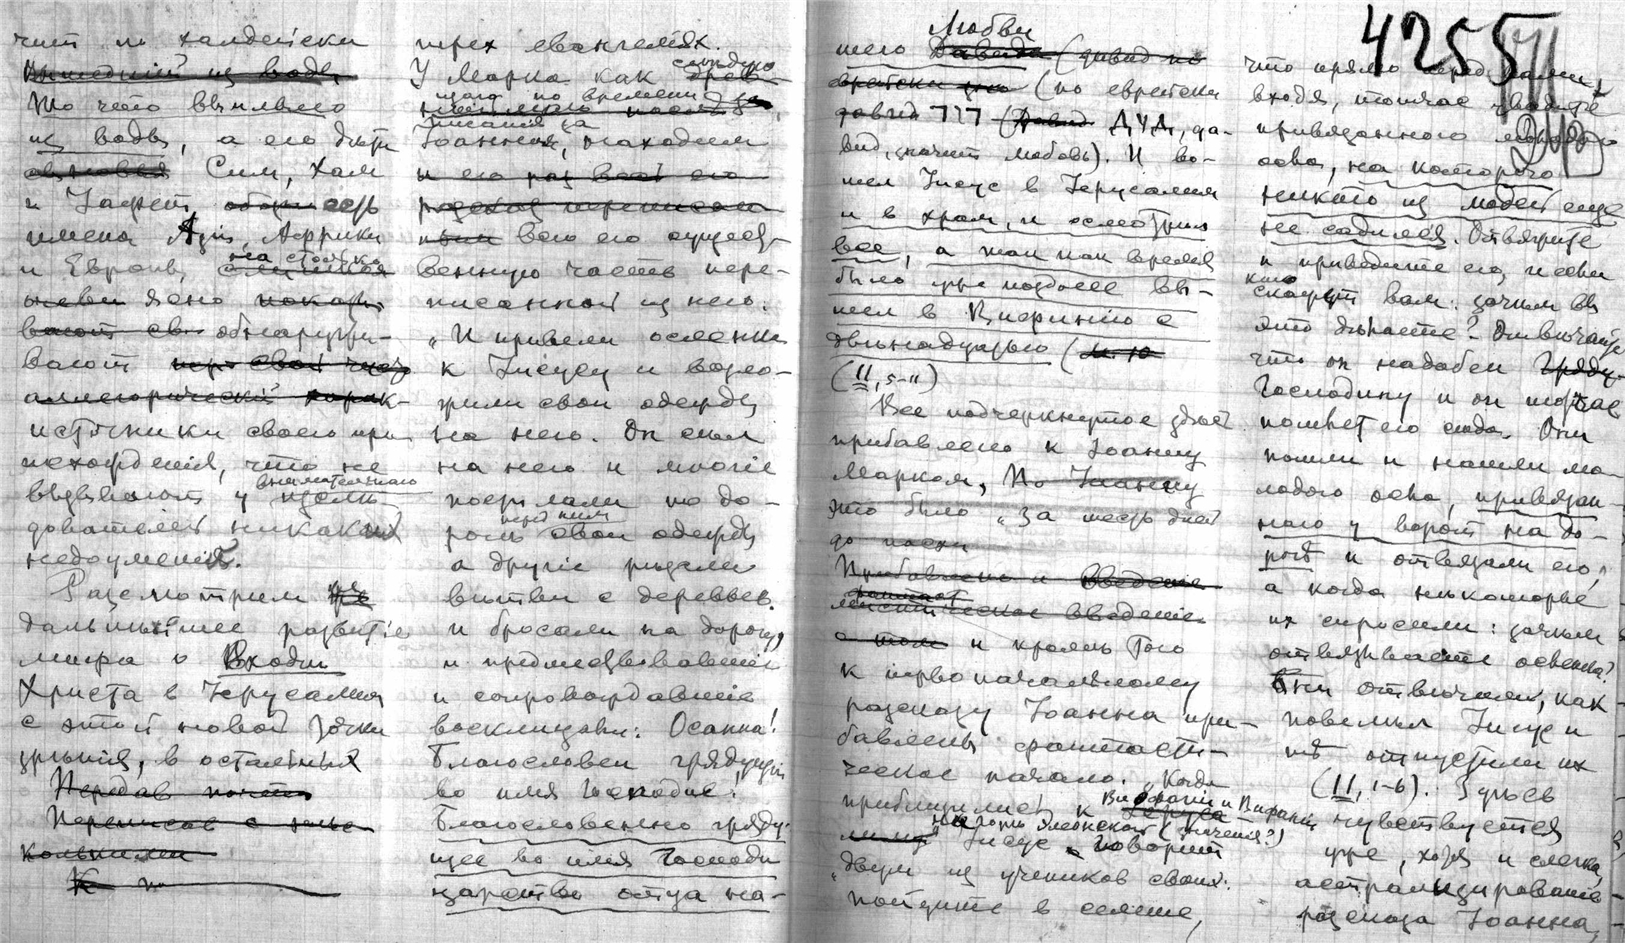 чит по халдейски
Вышедшій из воды
То что выплыло
из воды, а его дѣти
Сим, Хам
и Іафет есть
имена Азіи, Африки
и Европы, на столько
ясно показы-
вают обнаружи-
вают
аллегорическій харак-
источники своего про-
исхожденія, что не
вызывают у внимательнаго
дователей никаких
недоумений.
Разсмотрим
дальнѣйшее развитіе
мифа о Входѣ
Христа в Іерусалим
с этой новой точки
зрѣнія, в остальных
Передав
Переписав с

К
трех евангеліях.
У Марка как слѣдую-
щаго по времени
писанія за
Іоанном, находим
и его раз
разсказ переписан
ным всю его сущест-
венную часть пере-
писанной из него:
„И привели осленка
к Іисусу и возло-
жили свои одежды
на него. Он сѣл
на него и многіе
постилали по до-
рогѣ перед ним свои одежды
а другіе рѣзали
вѣтви с деревьев
и бросали на дорогу,
и предшествовавшіе
и сопровождавшіе
восклицали: Осанна!
Благословен грядущій
во имя Господне!
Благословенно гряду-
щее во имя Господа
царство отца на-
Любви
шего Давида (давид по
еврейски (по еврейски
давид דוד (Давид ДУД, да-
вид, значит любовь). И во-
шел Іисус в Іерусалим
и в храм, и осмотрѣл
все, а так как время
было уже позднее вы-
шел в Вифанію с
двѣнадцатью
(11, 5-11)
Все подчеркнутое здѣсь
прибавлено к Іоанну
Марком, По Іоанну
это было „за шесть дней
до пасхи
Прибавлено и введение
введеніе
и кромѣ того
к первоначальному
разсказу Іоанна при-
бавлены фантасти-
ческое начало. „Когда
приблизились к Виффагіи и Вифаніи
к горѣ Элеонской (значенія?)
Іисус говорит
двум из учеников своих:
пойдите в селеніе,
4255
что прямо перед вами,
входя, тотчас увидите
привязаннаго молодого
осла, на котораго
никто из людей еще
не садился. Отвяжите
и приведите его, и если
кто скажет вам: зачѣм вы
это дѣлаете? Отвѣчайте
что он надобен Гряду-
Господину и он тотчас
пошлет его сюда. Они
пошли и нашли мо-
лодого осла, привязан-
наго у ворот на до-
рогѣ и отвязали его,
а когда нѣкоторые
их спросили: зачѣм
отвязываете осленка?
Они отвѣчали, как
повелѣл Іисус и
тѣ отпустили их
(11, 1-6). Здѣсь
чувствуется
уже, хотя и слегка,
астрализированіе
разсказа Іоанна,